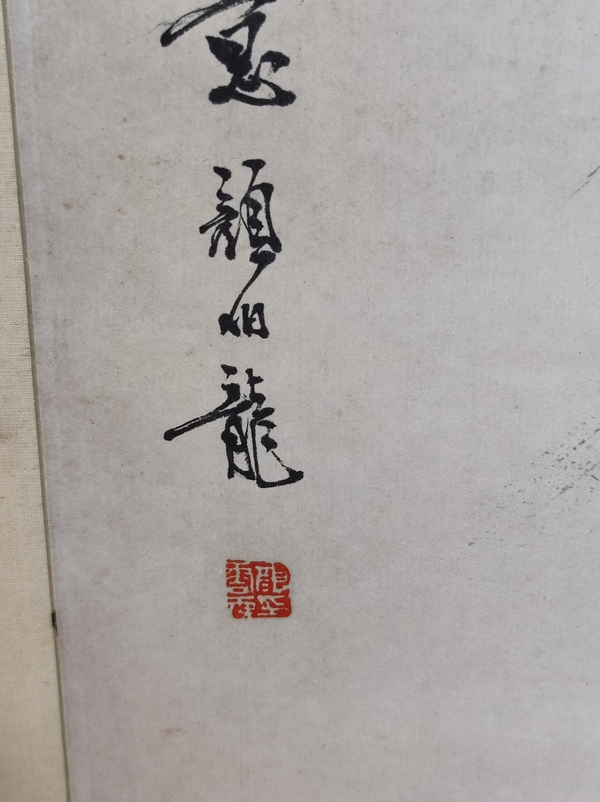 意顏伯龍